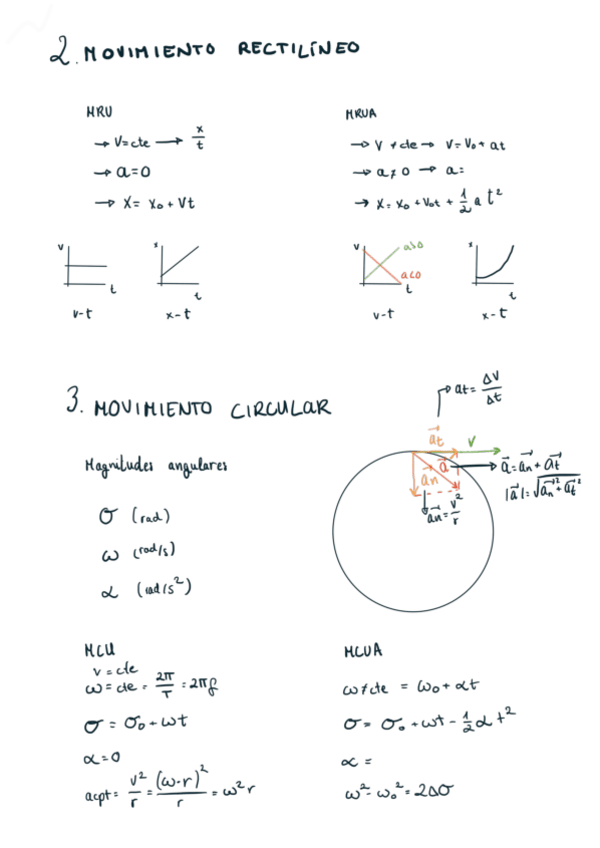 2. MOVIMIENTO RECTILÍNEO
MRU
→ V=cte → x/t
→ a=0
→ X= X₀+Vt
V
t
v-t
x
t
x-t
MRUA
→ V ≠ cte → V=V₀+at
→ a≠0 → a=
→ X= X₀+V₀t + 1/2 a t²
V
a>0
a<0
t
v-t
x
t
x-t
3. MOVIMIENTO CIRCULAR
Magnitudes angulares
σ (rad)
ω (rad/s)
α (rad/s²)
at= ΔV/Δt
at
V
a
an
a=an+at
|a|=√an²+at²
an=v²/r
MCU
v=cte
ω=cte = 2π/T = 2πf
σ=σ₀+ωt
α=0
acpt= v²/r = (ω·r)²/r = ω²r
MCUA
ω≠cte = ω₀+αt
σ= σ₀+ωt-1/2αt²
α=
ω²-ω₀²=2Δσ